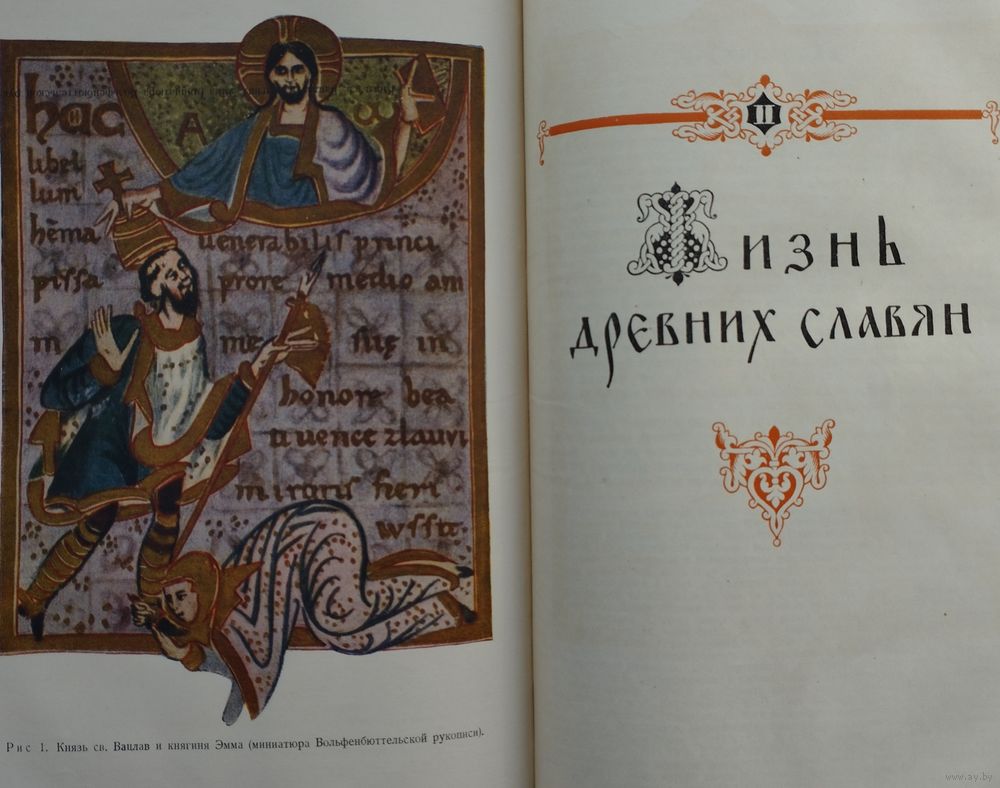 A ω
libel
lum
hēma uenerabilis princi
pissa prore medio
me in
honore bea
ti uuence zlauui
fieri
Рис 1. Князь св. Вацлав и княгиня Эмма (миниатюра Вольфенбюттельской рукописи).
II
Жизнь
древних славян
www.ay.by